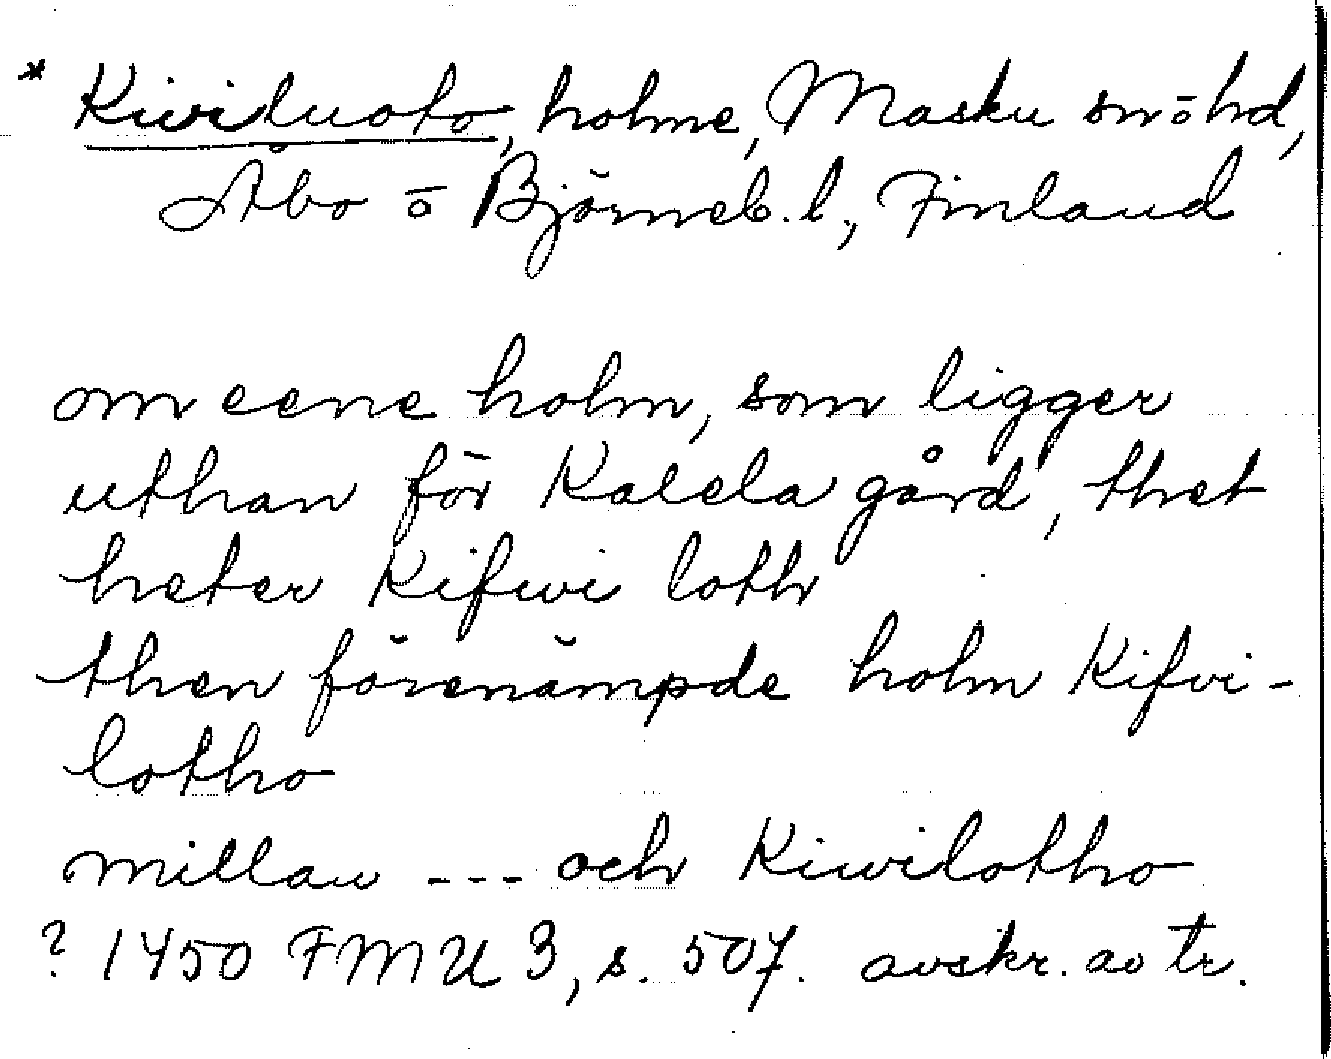 * Kiviluoto, holme, Masku sn o hd,
Åbo o Björneb. l., Finland
om eene holm, som ligger
uthan för Kalela gård, thet
heter Kifwi loth
then förenämpde holm Kifvi-
lotho
millan --- och Kiwilotho
? 1450 FMU 3, s. 507. avskr. av tr.